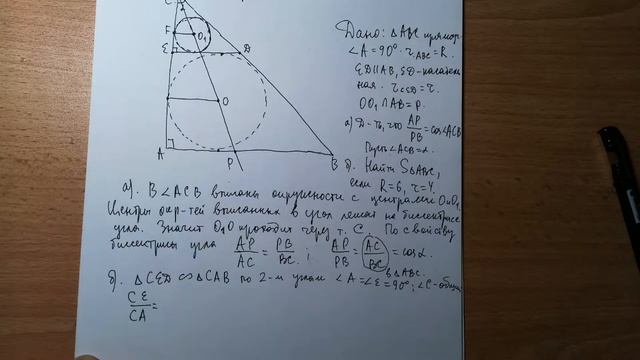 C
F
O₁
E
D
O
A
P
B
Дано: △ABC прямоуг.
∠A = 90°. r_ABC = R.
ED∥AB, ED - касатель-
ная. r_CED = r.
OO₁ ∩ AB = P.
а) Д-ть, что AP/PB = cos∠ACB
Пусть ∠ACB = α.
б). Найти S△ABC,
если R = 6, r = 4.
а). В ∠ACB вписаны окружности с центрами O и O₁
Центры окр-тей вписанных в угол лежат на биссектрисе
угла. Значит O₁O проходит через т. C. По свойству
биссектрисы угла AP/AC = PB/BC ; AP/PB = AC/BC = cosα.
в △ABC.
б). △CED ∾ △CAB по 2-м углам ∠A = ∠E = 90°; ∠C - общий
CE/CA =